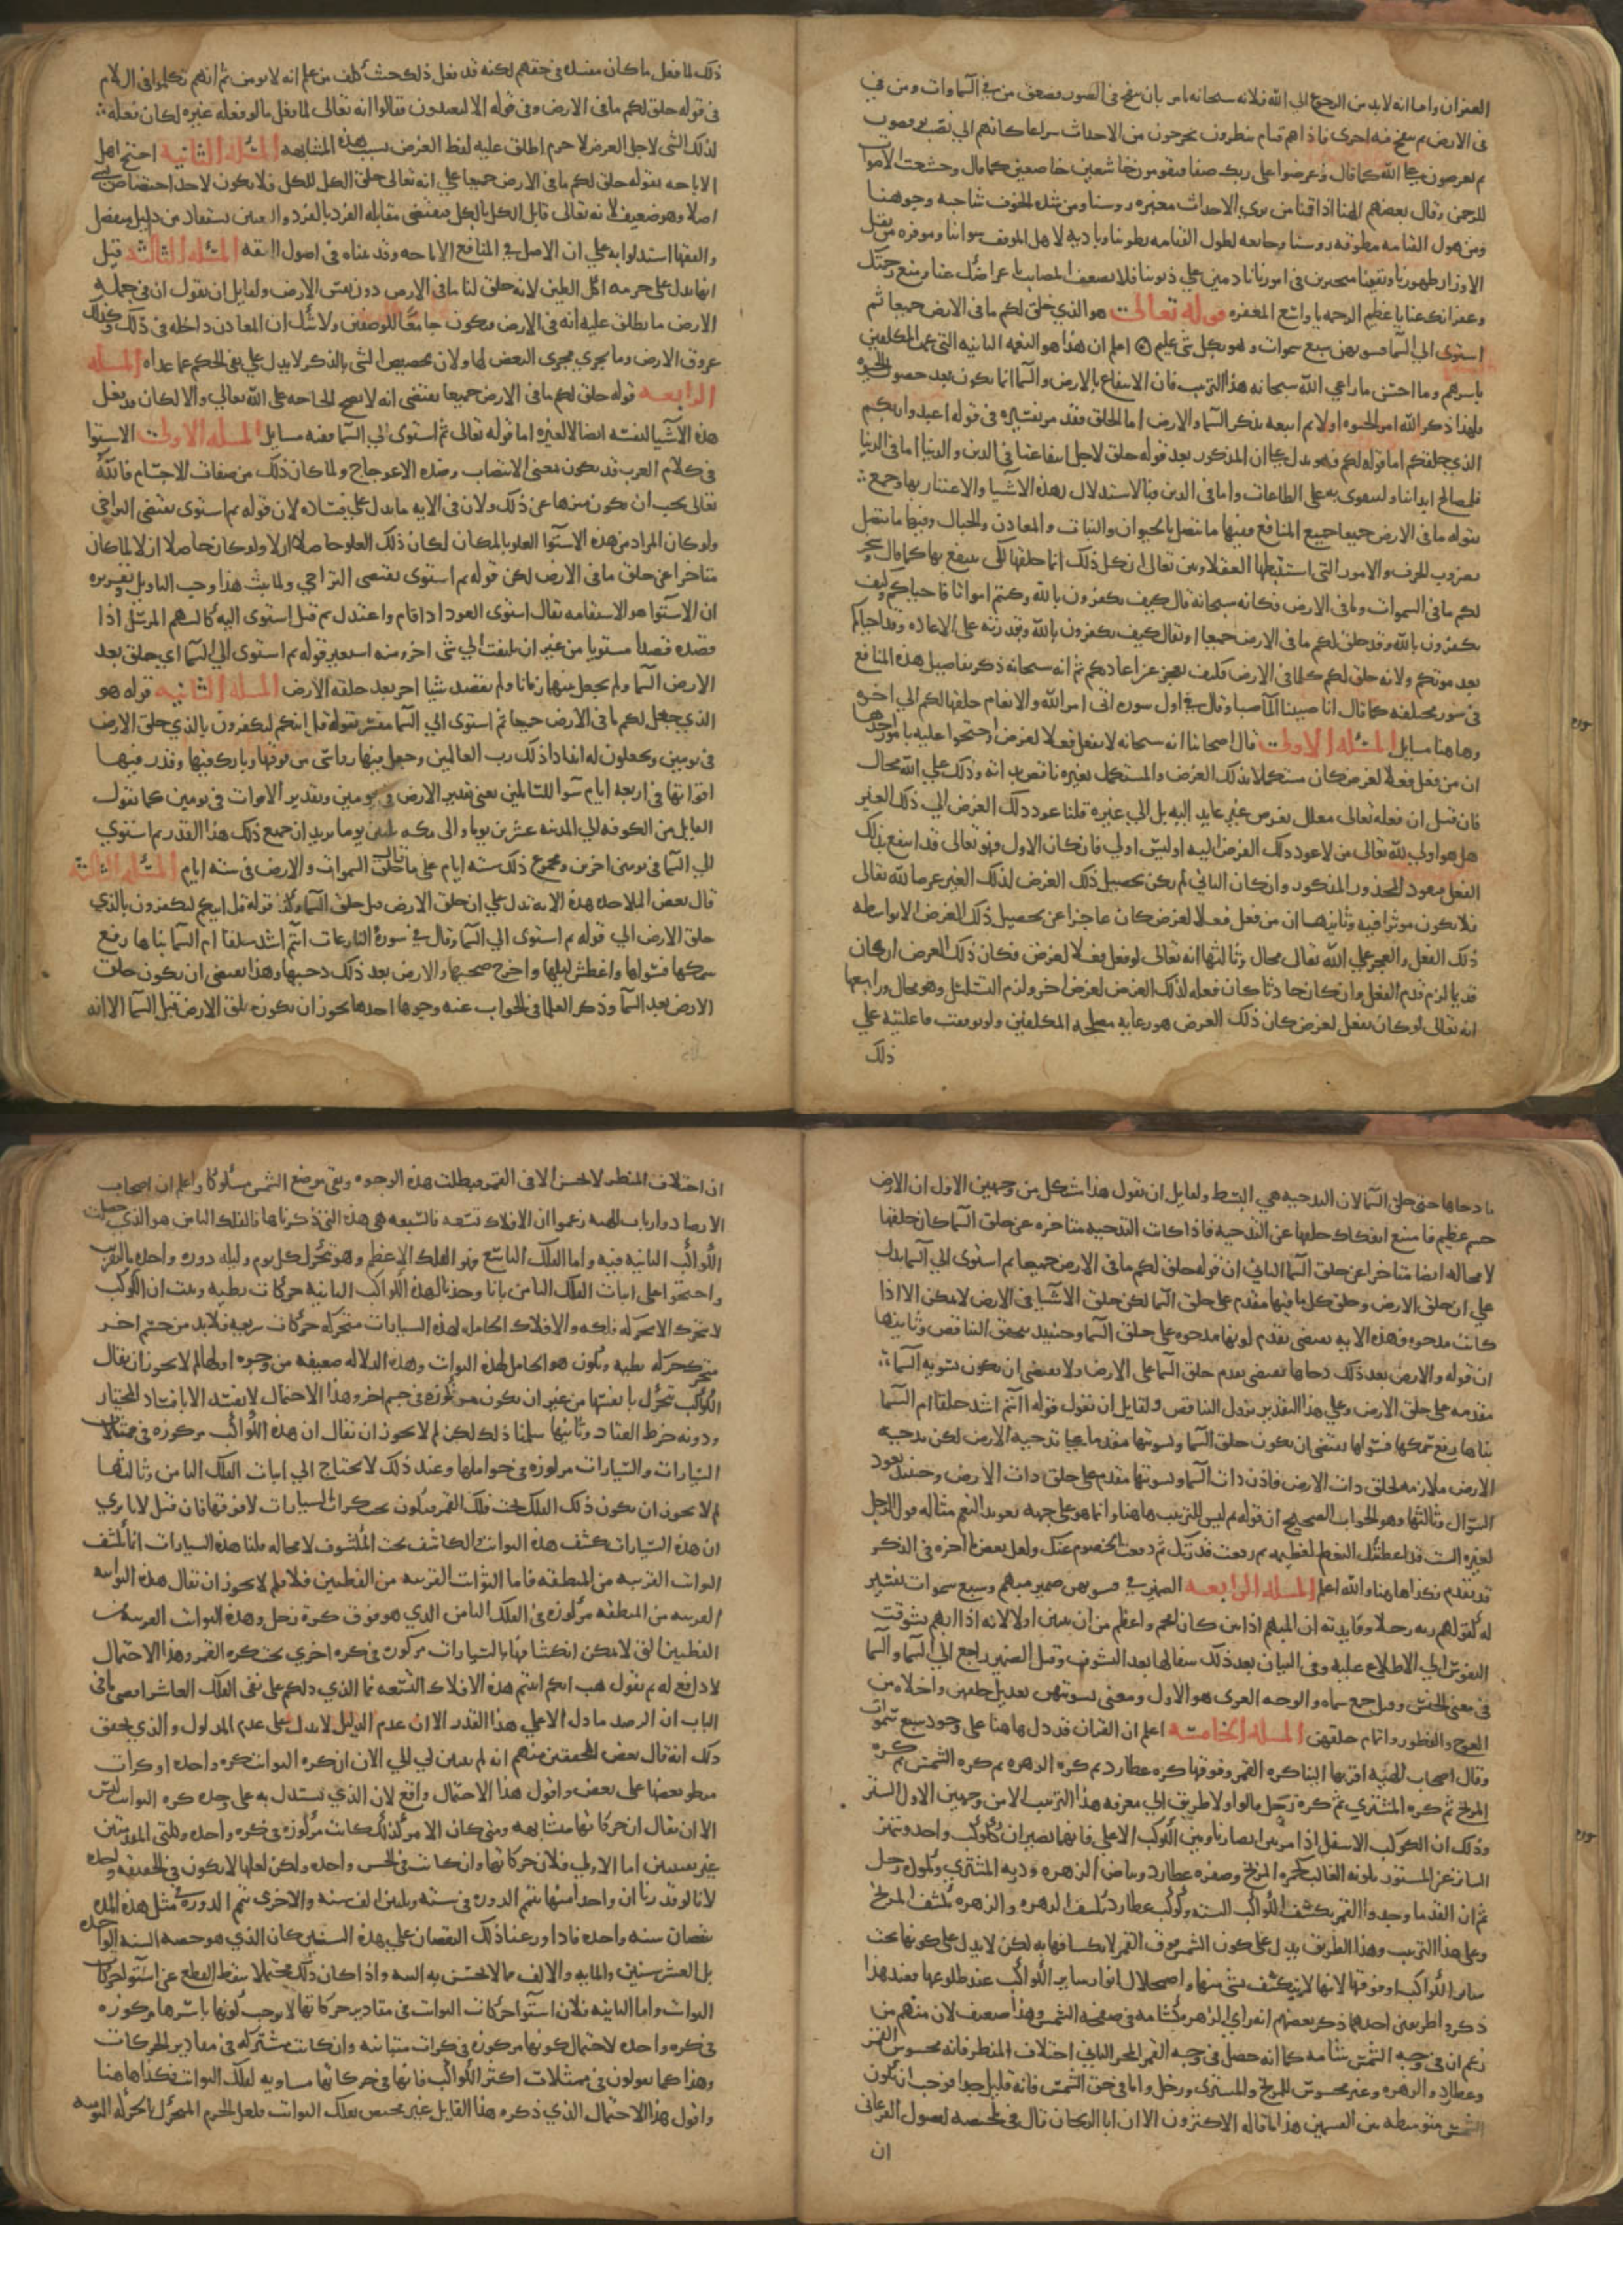 العبران واما انه لابد من الرجوع الى الله فلانه سبحانه يامر بان ينفخ في الصور فصعق من في السماوات ومن في
في الارض ثم ينفخ فيه اخرى فاذا هم قيام ينظرون يخرجون من الاحداث سراعا كانهم الي نصب يوفضون
ثم يعرضون علي الله كما قال وعرضوا على ربك صفا فيقومون خاشعين خاضعين كما قال وخشعت الاصوات
للرحمن وقال بعضهم الهنا اذا قمنا من ثري الاجداث مغبره روسنا ومن شده الخوف شاحبه وجوهنا
ومن هول القيامه مطرقه روسنا وجايعه لطول القيامه بطوننا وباديه لاهل الموقف سواتنا وموقره من ثقل
الاوزار ظهورنا وبقينا متحيرين في امورنا نادمين علي ذنوبنا فلا تضعف المصايب باعراضك عنا ووسع رحمتك
وغفرانك عنا يا عظيم الرحمه يا واسع المغفره قوله تعالى هو الذي خلق لكم ما في الارض جميعا ثم
استوى الي السما فسويهن سبع سموات وهو بكل شي عليم اعلم ان هذا هو النعمه الثانيه التي عمت المكلفين
باسرهم وما احسن ما راعي الله سبحانه هذا الترتيب فان الانتفاع بالارض والسما انما يكون بعد حصول الحيوه
فلهذا ذكر الله امر الحيوه اولا ثم اتبعه بذكر السما والارض اما الخلق فقد مر تفسيره في قوله اعبدوا ربكم
الذي خلقكم اما قوله لكم فهو يدل علي ان المذكور بعد قوله خلق لاجل انتفاعنا في الدين والدنيا اما في الدنيا
فلمصالح ابداننا ولنتقوى به علي الطاعات واما في الدين فبالاستدلال بهذه الاشيا والاعتبار بها وجمع
بقوله ما في الارض جميعا جميع المنافع فمنها ما يتصل بالحيوان والنبات والمعادن والجبال ومنها ما يتصل
بضروب الحرف والامور التي استنبطها العقلا وبين تعالى ان كل ذلك انما خلقها لكي ينتفع بها كما قال وسخر
لكم ما في السموات وما في الارض فكانه سبحانه قال كيف تكفرون بالله وكنتم امواتا فاحياكم وكيف
تكفرون بالله وقد خلق لكم ما في الارض جميعا او نقال كيف تكفرون بالله وبقدرته على الاعاده وقد احياكم
بعد موتكم ولانه خلق لكم كلما في الارض فكيف يعجز عن اعادتكم ثم انه سبحانه ذكر تفاصيل هذه المنافع
في سور مختلفه كما قال انا صببنا الما صبا وقال في اول سوره اتى امر الله والانعام خلقها لكم الي اخره
وهاهنا مسايل المسئله الاولى قال اصحابنا انه سبحانه لا يفعل فعلا لغرض واحتجوا عليه بامور احدها
ان من فعل فعلا لغرض كان مستكملا بذلك الغرض والمستكمل بغيره ناقص بذاته وذلك علي الله محال
فان قيل ان فعله تعالى معلل بغرض غير عايد اليه بل الي غيره قلنا عود ذلك الغرض الي ذلك الغير
هل هو اولى لله تعالى من لا عود ذلك الغرض اليه او ليس اولي فان كان الاول فهو تعالى قد انتفع بذلك
الفعل فيعود المحذور المذكور وان كان الثاني لم يكن تحصيل ذلك الغرض لذلك الغير غرضا لله تعالى
فلا يكون موثرا فيه وثانيها ان من فعل فعلا لغرض كان عاجزا عن تحصيل ذلك الغرض الا بواسطه
ذلك الفعل والعجز على الله تعالى محال وثالثها انه تعالى لو فعل فعلا لغرض فكان ذلك الغرض ان كان
قديما لزم قدم الفعل وان كان حادثا كان فعله لذلك الغرض لغرض اخر ولزم التسلسل وهو محال ورابعها
انه تعالى لو كان يفعل لغرض كان ذلك الغرض هو رعايه مصلحه المكلفين ولو توقفت فاعليته علي
ذلك
ذلك لما فعل ما كان مفسده في حقهم لكنه قد فعل ذلك حيث كلف من علم انه لا يومن ثم انهم تكلموا في اللام
في قوله خلق لكم ما في الارض وفي قوله الا ليعبدون فقالوا انه تعالى لما فعل ما لو فعله غيره لكان فعله
لذلك الشي لاجل الغرض لا جرم اطلق عليه لفظ الغرض بسبب هذه المشابهه المسئله الثانيه احتج اهل
الاباحه بقوله خلق لكم ما في الارض جميعا علي انه تعالى خلق الكل للكل فلا يكون لاحد اختصاص بشي
اصلا وهو ضعيف لانه تعالى قابل الكل بالكل فيقتضي مقابله الفرد بالفرد والتعيين يستفاد من دليل منفصل
والفقها استدلوا به علي ان الاصل في المنافع الاباحه وقد بيناه في اصول الفقه المسئله الثالثه قيل
انها تدل على حرمه اكل الطين لانه خلق لنا ما في الارض دون نفس الارض ولقايل ان يقول ان في جمله
الارض ما يطلق عليه انه في الارض فيكون جامعا للوصفين ولا شك ان المعادن داخله في ذلك وكذلك
عروق الارض وما يجري مجرى البعض لها ولان تخصيص الشي بالذكر لا يدل علي نفي الحكم عما عداه المسله
الرابعه قوله خلق لكم ما في الارض جميعا يقتضي انه لا يصح الحاجه على الله تعالي والا لكان قد فعل
هذه الاشيا لنفسه ايضا لا لغيره اما قوله تعالى ثم استوى الي السما ففيه مسايل المسله الاولى الاستوا
في كلام العرب قد يكون بمعنى الانتصاب وضده الاعوجاج ولما كان ذلك من صفات الاجسام فالله
تعالى يجب ان يكون منزها عن ذلك ولان في الايه ما يدل علي فساده لان قوله ثم استوى يقتضي التراخي
ولو كان المراد من هذه الاستوا العلو بالمكان لكان ذلك العلو حاصلا اولا ولو كان حاصلا اولا لما كان
متاخرا عن خلق ما في الارض لكن قوله ثم استوى يقتضي التراخي ولما ثبت هذا وجب التاويل وتقريره
ان الاستوا هو الاستقامه يقال استوى العود اذا قام واعتدل ثم قيل استوى اليه كالسهم المرسل اذا
قصده قصدا مستويا من غير ان يلتفت الي شي اخر ومنه استعير قوله ثم استوى الي السما اي خلق بعد
الارض السما ولم يجعل بينهما زمانا ولم يقصد شيا اخر بعد خلقه الارض المسله الثانيه قوله هو
الذي جعل لكم ما في الارض جميعا ثم استوى الي السما مفسر بقوله قل ائنكم لتكفرون بالذي خلق الارض
في يومين وتجعلون له اندادا ذلك رب العالمين وجعل فيها رواسي من فوقها وبارك فيها وقدر فيها
اقواتها في اربعه ايام سوا للسائلين يعني تقدير الارض في يومين وتقدير الاقوات في يومين كما يقول
القايل من الكوفه الي المدينه عشرين يوما والى مكه ثلثين يوما يريد ان جميع ذلك هذا القدر ثم استوي
الي السما في يومين اخرين ومجموع ذلك سته ايام على ما قال خلق السموات والارض في سته ايام المسئله الثالثه
قال بعض الملاحده هذه الايه تدل علي ان خلق الارض قبل خلق السما وكذا قوله قل ايىكم لتكفرون بالذي
خلق الارض الي قوله ثم استوى الي السما وقال في سوره النازعات اانتم اشد خلقا ام السما بناها رفع
سمكها فسواها واغطش ليلها واخرج ضحيها والارض بعد ذلك دحيها وهذا يقتضي ان يكون خلق
الارض بعد السما وذكر العلما في الجواب عنه وجوها احدها يجوز ان يكون خلق الارض قبل السما الا انه
ما دحاها حتى خلق السما لان التدحيه هي البسط ولقايل ان يقول هذا مشكل من وجهين الاول ان الارض
جسم عظيم فامتنع انفكاك خلقها عن التدحيه فاذا كانت التدحيه متاخره عن خلق السما كان خلقها
لا محاله ايضا متاخرا عن خلق السما الثاني ان قوله خلق لكم ما في الارض جميعا ثم استوى الي السما يدل
علي ان خلق الارض وخلق كل ما فيها مقدم على خلق السما لكن خلق الاشيا في الارض لا يمكن الا اذا
كانت مدحوه فهذه الايه تقتضي تقدم كونها مدحوه على خلق السما وحينيذ يتحقق التناقض وثانيها
ان قوله والارض بعد ذلك دحاها يقتضي تقدم خلق السما على الارض ولا يقتضي ان يكون تسويه السما
مقدمه على خلق الارض وعلي هذا التقدير يزول التناقض ولقايل ان يقول قوله اانتم اشد خلقا ام السما
بناها رفع سمكها فسواها يقتضي ان يكون خلق السما وتسويتها مقدما علي تدحيه الارض لكن تدحيه
الارض ملازمه لخلق ذات الارض فاذن ذات السما وتسويتها متقدم على خلق ذات الارض وحينيذ يعود
السوال وثالثها وهو الجواب الصحيح ان قوله ثم ليس للترتيب هاهنا وانما هو على جهه تعديد النعم مثاله قول الرجل
لغيره الست قد اعطيتك النعم العظيمه ثم رفعت قدرك ثم دفعت الخصوم عنك ولعل بعض ما اخره في الذكر
قد يتقدم فكذا هاهنا والله اعلم المسله الرابعه الضمير في فسويهن ضمير مبهم وسبع سموات تفسير
له كقولهم ربه رجلا وفايدته ان المبهم اذا بين كان افخم واعظم من ان يبين اولا لانه اذا ابهم تشوقت
النفوس الي الاطلاع عليه وفي البيان بعد ذلك شفا لها بعد التشوف وقيل الضمير راجع الي السما والسما
في معنى الجنس وقيل جمع سماه والوجه العربى هو الاول ومعنى تسويتهن تعديل خلقهن واخلاه من
العوج والفطور واتمام خلقهن المسله الخامسه اعلم ان القران قد دل هاهنا على وجود سبع سموات
وقال اصحاب الهيه اقربها الينا كره القمر وفوقها كره عطارد ثم كره الزهره ثم كره الشمس ثم كره
المريخ ثم كره المشتري ثم كره زحل قالوا ولا طريق الي معرفه هذا الترتيب الا من وجهين الاول الستر
وذلك ان الكوكب الاسفل اذا مر بين ابصارنا وبين الكوكب الاعلي فانهما يصيران ككوكب واحد ويتميز
الساتر عن المستور بلونه الغالب كحمره المريخ وصفره عطارد وبياض الزهره ودره المشتري وكمود زحل
ثم ان القدما وجدوا القمر يكسف الكواكب السته وكوكب عطارد يكسف الزهره والزهره يكسف المريخ
وعلى هذا الترتيب وهذا الطريق يدل على كون الشمس فوق القمر لانكسافها به لكن لا يدل على كونها تحت
سائر الكواكب او فوقها لانها لا تنكسف بشي منها واضمحلال انوار ساير الكواكب عند طلوعها فعند هذا
ذكروا طريقين احدهما ذكر بعضهم انه راي الزهره كشامه في صفحه الشمس وهذا ضعيف لان منهم من
زعم ان في وجه الشمس شامه كما انه حصل في وجه القمر المحو الثاني اختلاف المنظر فانه محسوس للقمر
وعطارد والزهره وغير محسوس للمريخ والمشترى وزحل واما في حق الشمس فانه قليل جدا فوجب ان تكون
الشمس متوسطه بين القسمين هذا ما قاله الاكثرون الا ان ابا الريحان قال في تلخيصه لفصول الفرغاني
ان
ان اختلاف المنظر لا يحس الا في القمر فبطلت هذه الوجوه وبقي موضع الشمس مشكوكا واعلم ان اصحاب
الارصاد وارباب الهيه زعموا ان الافلاك تسعه فالسبعه هي هذه التي ذكرناها فالفلك الثامن هو الذي حصلت
الكواكب الثابته فيه واما الفلك التاسع فهو الفلك الاعظم وهو يتحرك كل يوم وليله دوره واحده بالتقريب
واحتجوا على اثبات الفلك الثامن بانا وجدنا لهذه الكواكب الثابته حركات بطيه وثبت ان الكوكب
لا يتحرك الا بحركه فلكه والافلاك الحامله لهذه السيارات متحركه حركات سريعه فلا بد من جسم اخر
متحرك حركه بطيه ويكون هو الحامل لهذه الثوابت وهذه الدلاله ضعيفه من وجوه اولها لم لا يجوز ان يقال
الكواكب تتحرك بانفسها من غير ان يكون مركوزه في جسم اخر وهذا الاحتمال لا يفسد الا بافساد المختار
ودونه خرط القتاد وثانيها سلمنا ذلك لكن لم لا يجوز ان يقال ان هذه الكواكب مركوزه في ممثلات
السيارات والسيارات مركوزه في حواملها وعند ذلك لا يحتاج الي اثبات الفلك الثامن وثالثها
لم لا يجوز ان يكون ذلك الفلك تحت فلك القمر فيكون تحت كرات السيارات لا فوقها فان قيل لانا نري
ان هذه السيارات تكسف هذه الثوابت والكاسف تحت المكسوف لا محاله قلنا هذه السيارات انما تكسف
الثوابت القريبه من المنطقه فاما الثوابت القريبه من القطبين فلا فلم لا يجوز ان يقال هذه الثوابت
القريبه من المنطقه مركوزه في الفلك الثامن الذي هو فوق كرة زحل وهذه الثوابت القريبه من
القطبين التي لا يمكن انكسافها بالسيارات مركوزه في كره اخري تحت كره القمر وهذا الاحتمال
لا دافع له ثم نقول هب انكم اثبتم هذه الافلاك التسعه فما الذي دلكم على نفي الفلك العاشر اقصى ما في
الباب ان الرصد ما دل الا علي هذا القدر الا ان عدم الدليل لا يدل على عدم المدلول والذي يحقق
ذلك انه قال بعض المحققين منهم انه لم يتبين لي الي الان ان كره الثوابت كره واحده او كرات
منطو بعضها على بعض واقول هذا الاحتمال واقع لان الذي يستدل به على وحده كره الثوابت ليس
الا ان يقال ان حركاتها متشابهه ومتي كان الامر كذلك كانت مركوزه في كره واحده وكلتي المقدمتين
غير يقينيتين اما الاولى فلان حركاتها وان كانت في الحس واحده ولكن لعلها لا يكون في الحقيقه واحده
لانا لو قدرنا ان واحدا منها يتمم الدوره في سته وثلثين الف سنه والاخرى يتمم الدوره في مثل هذه المده
بنقصان سنه واحده فاذا وزعنا ذلك النقصان علي هذه السنين كان الذي هو حصه السنه الواحده
بل العشر سنين والمايه والالف مما لا يحس به البته واذا كان ذلك محتملا سقط القطع عن استوا حركات
الثوابت واما الثانيه فلان استوا حركات الثوابت في مقادير حركاتها لا يوجب كونها باسرها مركوزه
في كره واحده لاحتمال كونها مركوزه في كرات متباينه وان كانت مشتركه في مقادير الحركات
وهذا كما يقولون في ممثلات اكثر الكواكب فانها في حركاتها مساويه لفلك الثوابت فكذا هاهنا
واقول هذا الاحتمال الذي ذكره هذا القايل غير مختص بفلك الثوابت فلعل الجرم المتحرك بالحركه اليوميه